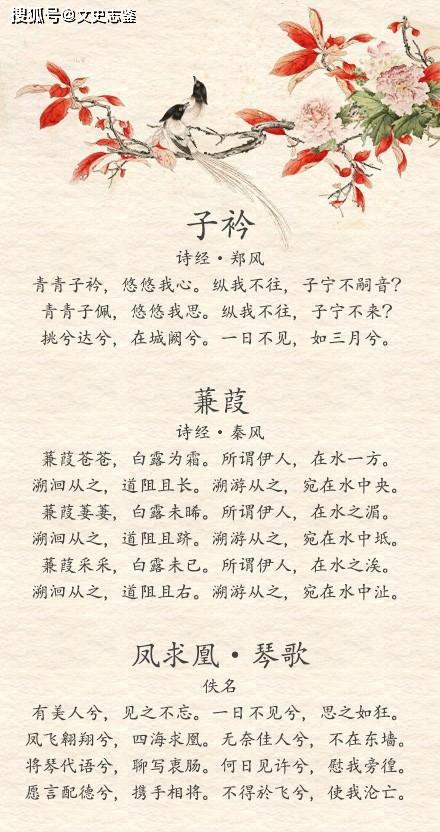 搜狐号@文史志鉴
子衿
诗经·郑风
青青子衿，悠悠我心。纵我不往，子宁不嗣音？
青青子佩，悠悠我思。纵我不往，子宁不来？
挑兮达兮，在城阙兮。一日不见，如三月兮。
蒹葭
诗经·秦风
蒹葭苍苍，白露为霜。所谓伊人，在水一方。
溯洄从之，道阻且长。溯游从之，宛在水中央。
蒹葭萋萋，白露未晞。所谓伊人，在水之湄。
溯洄从之，道阻且跻。溯游从之，宛在水中坻。
蒹葭采采，白露未已。所谓伊人，在水之涘。
溯洄从之，道阻且右。溯游从之，宛在水中沚。
凤求凰·琴歌
佚名
有美人兮，见之不忘。一日不见兮，思之如狂。
凤飞翱翔兮，四海求凰。无奈佳人兮，不在东墙。
将琴代语兮，聊写衷肠。何日见许兮，慰我旁徨。
愿言配德兮，携手相将。不得於飞兮，使我沦亡。